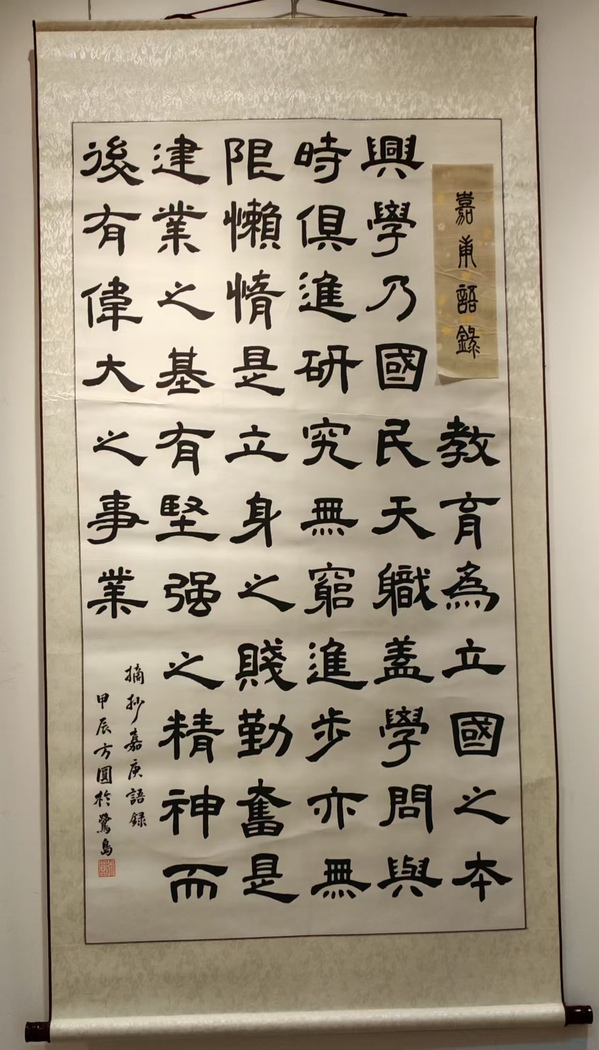 嘉庚語錄
教育為立國之本
興學乃國民天職蓋學問與
時俱進研究無窮進步亦無
限懶惰是立身之賤勤奮是
建業之基有堅强之精神而
後有偉大之事業
摘抄嘉庚語録
甲辰方圓於鷺島